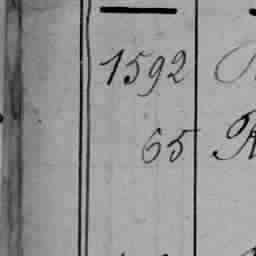 1592
65